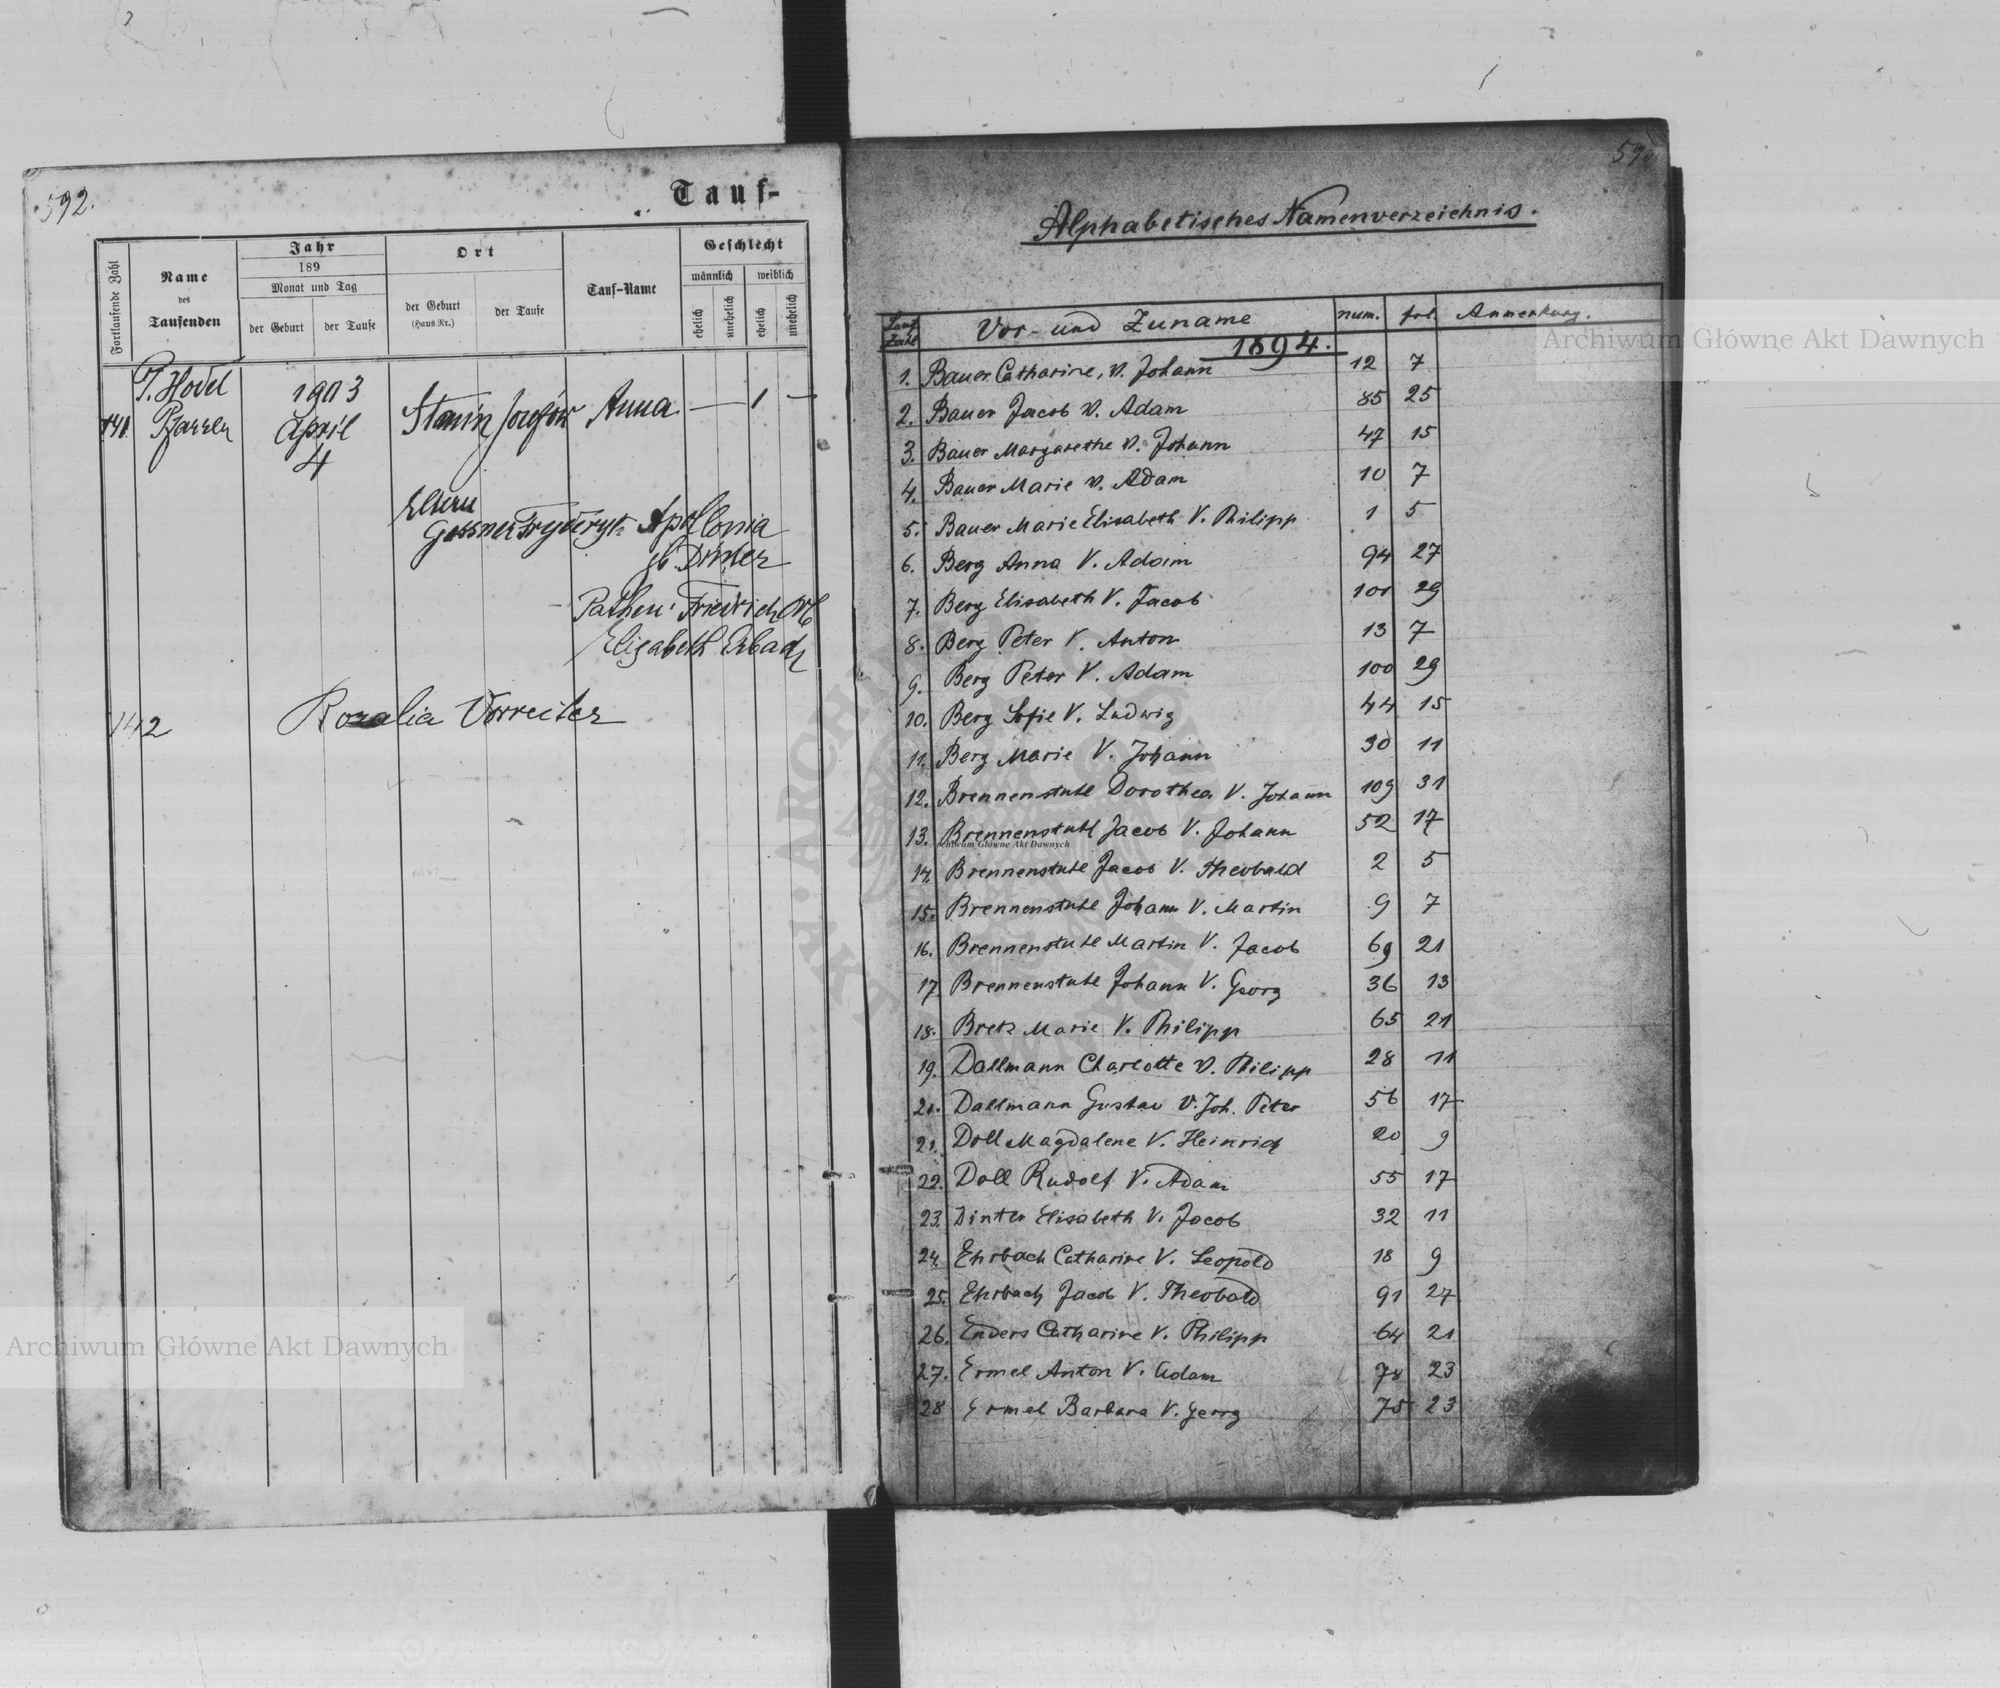 592.
Tauf-
Fortlaufende Zahl
Name
des
Taufenden
Jahr
189
Monat und Tag
der Geburt
der Taufe
Ort
der Geburt
(Haus-Nr.)
der Taufe
Tauf-Name
Geschlecht
männlich
weiblich
ehelich
unehelich
ehelich
unehelich
T. Hodel
Pfarrer
141.
1903
April
4
Stanin Josefów
Anna
— 1 —
Eltern
Gessner Fryderyk Apollonia
gb. Dinter
Pathen: Friedrich
Elisabeth Erbach
142 Rozalia Vorreiter
Alphabetisches Namenverzeichnis.
Lauf Zahl Vor- und Zuname num. fol. Anmerkung.
1894.
1. Bauer Catharine, V. Johann 12 7
2. Bauer Jacob V. Adam 85 25
3. Bauer Margarethe V. Johann 47 15
4. Bauer Marie V. Adam 10 7
5. Bauer Marie Elisabeth V. Philipp 1 5
6. Berg Anna V. Adam 94 27
7. Berg Elisabeth V. Jacob 101 29
8. Berg Peter V. Anton 13 7
9. Berg Peter V. Adam 100 29
10. Berg Sofie V. Ludwig 44 15
11. Berg Marie V. Johann 30 11
12. Brennenstuhl Dorothea V. Johann 109 31
13. Brennenstuhl Jacob V. Johann 52 17
14. Brennenstuhl Jacob V. Theobald 2 5
15. Brennenstuhl Johann V. Martin 9 7
16. Brennenstuhl Martin V. Jacob 69 21
17. Brennenstuhl Johann V. Georg 36 13
18. Bretz Marie V. Philipp 65 21
19. Dallmann Charlotte V. Philipp 28 11
20. Dallmann Gustav V. Joh. Peter 56 17
21. Doll Magdalene V. Heinrich 20 9
22. Doll Rudolf V. Adam 55 17
23. Dinter Elisabeth V. Jacob 32 11
24. Ehrbach Catharine V. Leopold 18 9
25. Ehrbach Jacob V. Theobald 91 27
26. Enders Catharine V. Philipp 64 21
27. Ermel Anton V. Adam 78 23
28 Ermel Barbara V. Georg 75 23
Archiwum Główne Akt Dawnych
Archiwum Główne Akt Dawnych
Archiwum Główne Akt Dawnych